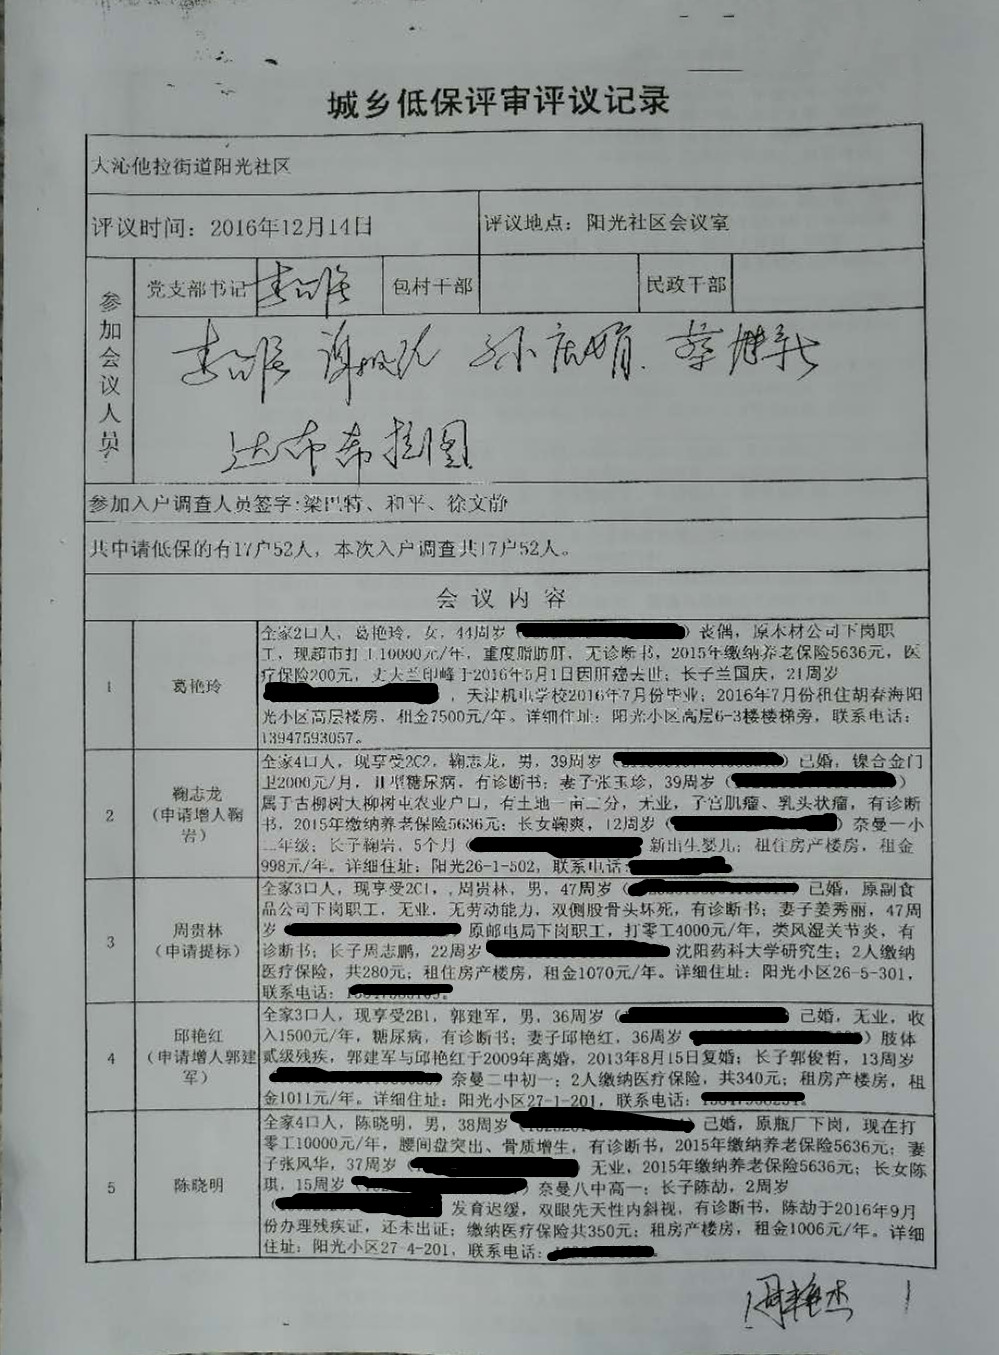 城乡低保评审评议记录
大沁他拉街道阳光社区
评议时间：2016年12月14日
评议地点：阳光社区会议室
参加会议人员
党支部书记
包村干部
民政干部
达布希拉图
参加入户调查人员签字:梁巴特、和平、徐文静
共申请低保的有17户52人，本次入户调查共17户52人。
会议内容
1
葛艳玲
全家2口人，葛艳玲，女，44周岁（ ）丧偶，原木材公司下岗职
工，现超市打工10000元/年，重度脂肪肝，无诊断书，2015年缴纳养老保险5636元，医
疗保险200元，丈夫兰印峰于2016年5月1日因肝癌去世；长子兰国庆，21周岁
，天津机电学校2016年7月份毕业；2016年7月份租住胡春海阳
光小区高层楼房，租金7500元/年。详细住址：阳光小区高层6-3楼楼梯旁，联系电话：
13947593057。
2
鞠志龙
(申请增人鞠
岩)
全家4口人，现享受2C2，鞠志龙，男，39周岁（ 已婚，镍合金门
卫2000元/月，II型糖尿病，有诊断书；妻子张玉珍，39周岁（ ）
属于古柳树大柳树屯农业户口，有土地一亩二分，无业，子宫肌瘤、乳头状瘤，有诊断
书，2015年缴纳养老保险5636元；长女鞠爽，12周岁（ ）奈曼一小
二年级；长子鞠岩，5个月（ 新出生婴儿；租住房产楼房，租金
998元/年。详细住址：阳光26-1-502，联系电话：
3
周贵林
(申请提标)
全家3口人，现享受2C1，周贵林，男，47周岁（ 已婚，原副食
品公司下岗职工，无业，无劳动能力，双侧股骨头坏死，有诊断书；妻子姜秀丽，47周
岁 原邮电局下岗职工，打零工4000元/年，类风湿关节炎，有
诊断书；长子周志鹏，22周岁 沈阳药科大学研究生；2人缴纳
医疗保险，共280元；租住房产楼房，租金1070元/年。详细住址：阳光小区26-5-301，
联系电话：
4
邱艳红
(申请增人郭建
军)
全家3口人，现享受2B1，郭建军，男，36周岁（ 已婚，无业，收
入1500元/年，糖尿病，有诊断书；妻子邱艳红，36周岁 ）肢体
贰级残疾，郭建军与邱艳红于2009年离婚，2013年8月15日复婚；长子郭俊哲，13周岁
奈曼二中初一；2人缴纳医疗保险，共340元；租房产楼房，租
金1011元/年。详细住址：阳光小区27-1-201，联系电话：
5
陈晓明
全家4口人，陈晓明，男，38周岁 ）已婚，原瓶厂下岗，现在打
零工10000元/年，腰间盘突出、骨质增生，有诊断书，2015年缴纳养老保险5636元；妻
子张风华，37周岁（ 无业，2015年缴纳养老保险5636元；长女陈
琪，15周岁 ）奈曼八中高一；长子陈劼，2周岁
（ 发育迟缓，双眼先天性内斜视，有诊断书，陈劼于2016年9月
份办理残疾证，还未出证；缴纳医疗保险共350元；租房产楼房，租金1006元/年。详细
住址：阳光小区27-4-201，联系电话：
1